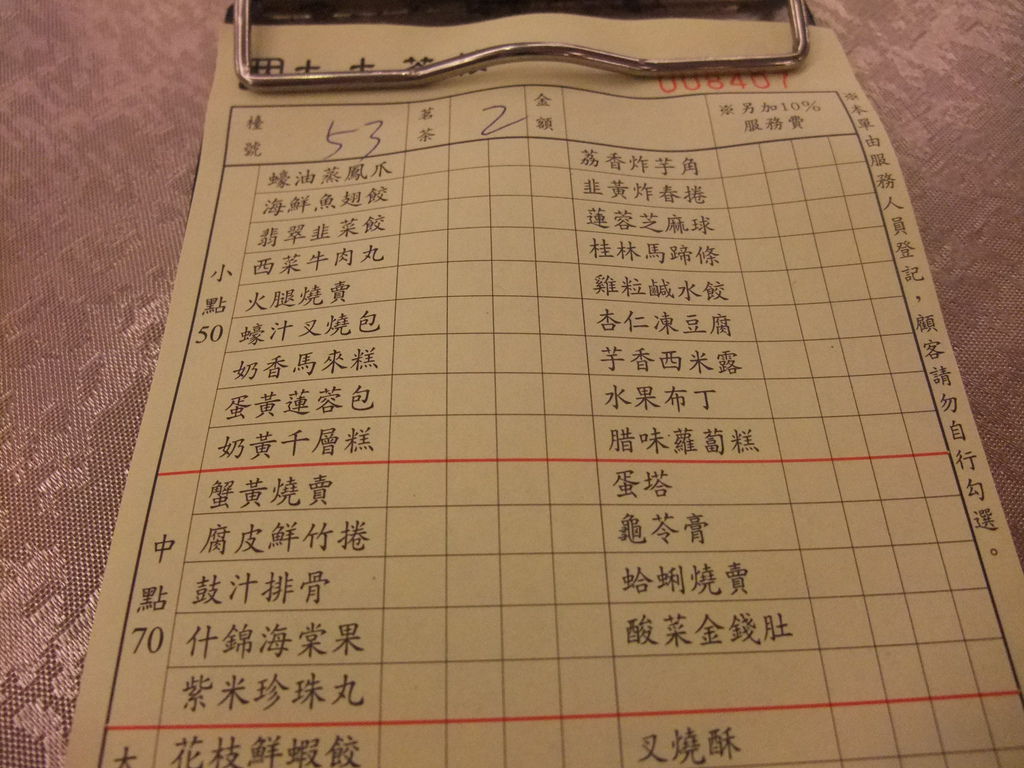 008407
檯號 53 茗茶 2 金額 ※另加10%服務費
小點50
蠔油蒸鳳爪
海鮮魚翅餃
翡翠韭菜餃
西菜牛肉丸
火腿燒賣
蠔汁叉燒包
奶香馬來糕
蛋黃蓮蓉包
奶黃千層糕
荔香炸芋角
韭黃炸春捲
蓮蓉芝麻球
桂林馬蹄條
雞粒鹹水餃
杏仁凍豆腐
芋香西米露
水果布丁
腊味蘿蔔糕
中點70
蟹黃燒賣
腐皮鮮竹捲
鼓汁排骨
什錦海棠果
紫米珍珠丸
蛋塔
龜苓膏
蛤蜊燒賣
酸菜金錢肚
大
花枝鮮蝦餃
叉燒酥
※本單由服務人員登記，顧客請勿自行勾選。